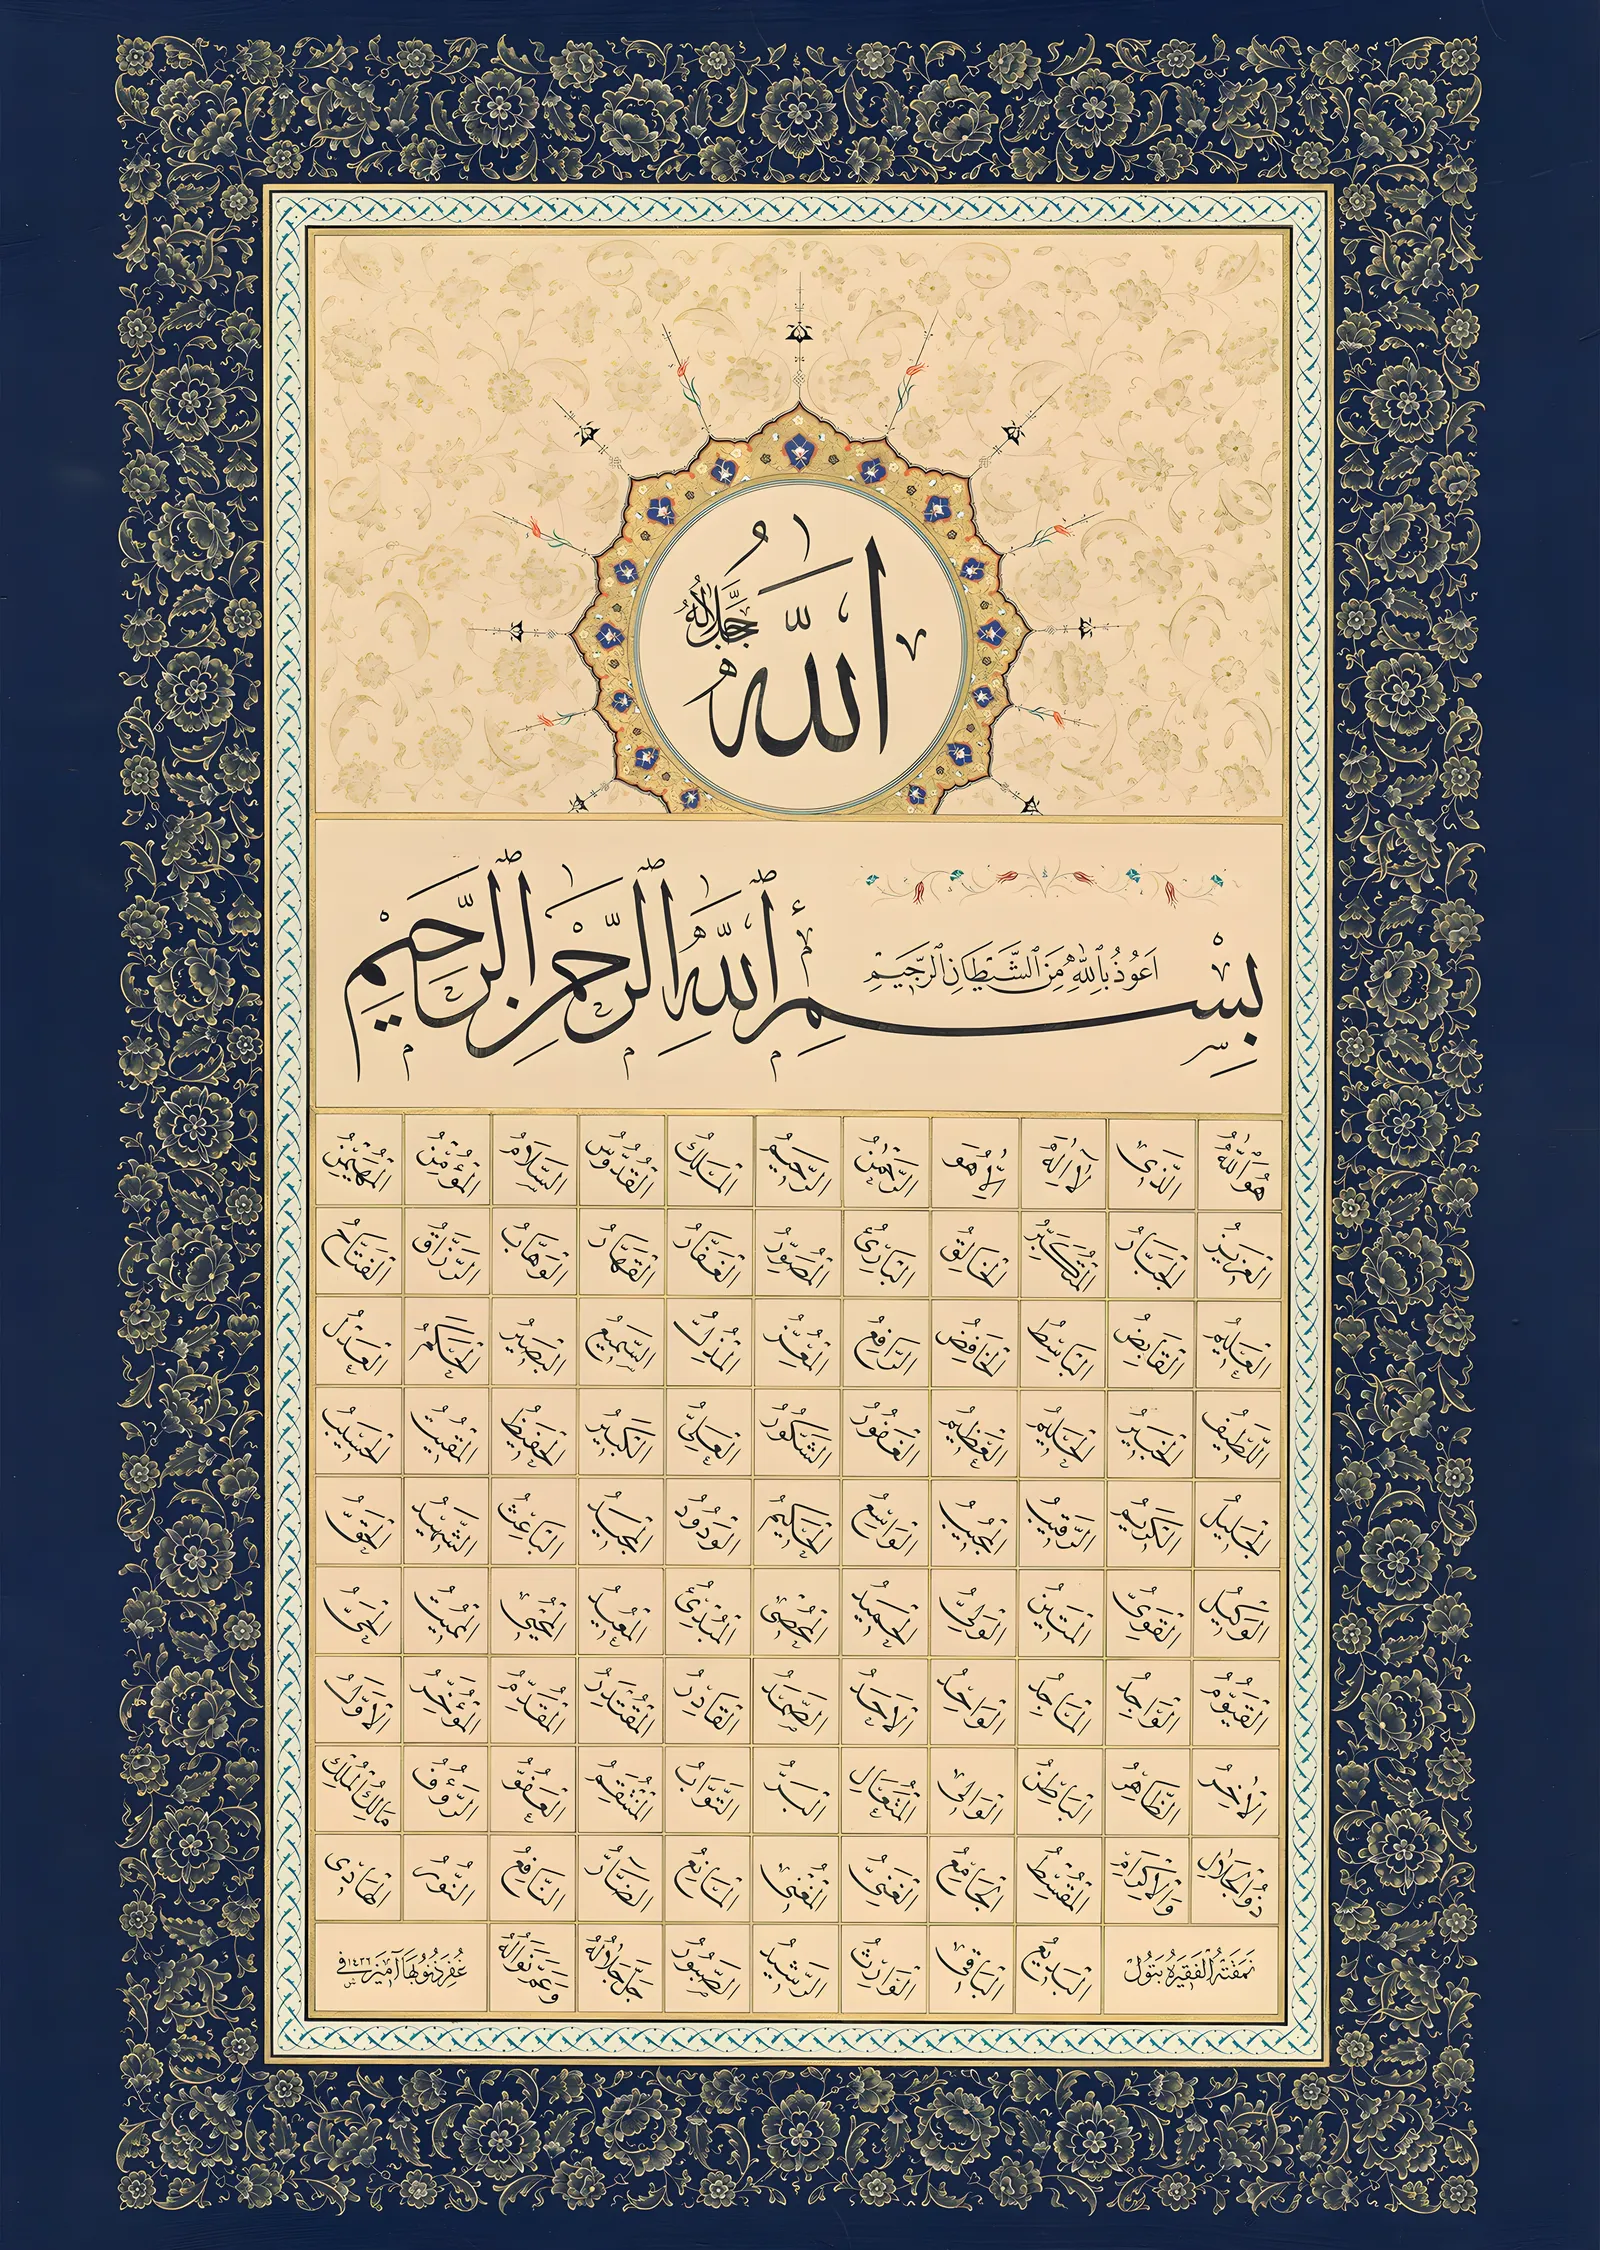 اللّٰهُ جَلَّ جَلَالُهُ
اَعُوذُ بِاللّٰهِ مِنَ الشَّيْطَانِ الرَّجِيمِ
بِسْمِ اللّٰهِ الرَّحْمٰنِ الرَّحِيمِ
هُوَ اللّٰهُ الَّذِى لَا اِلٰهَ اِلَّا هُوَ الرَّحْمٰنُ الرَّحِيمُ الْمَلِكُ الْقُدُّوسُ السَّلَامُ الْمُؤْمِنُ الْمُهَيْمِنُ
الْعَزِيزُ الْجَبَّارُ الْمُتَكَبِّرُ الْخَالِقُ الْبَارِئُ الْمُصَوِّرُ الْغَفَّارُ الْقَهَّارُ الْوَهَّابُ الرَّزَّاقُ الْفَتَّاحُ
الْعَلِيمُ الْقَابِضُ الْبَاسِطُ الْخَافِضُ الرَّافِعُ الْمُعِزُّ الْمُذِلُّ السَّمِيعُ الْبَصِيرُ الْحَكَمُ الْعَدْلُ
اللَّطِيفُ الْخَبِيرُ الْحَلِيمُ الْعَظِيمُ الْغَفُورُ الشَّكُورُ الْعَلِىُّ الْكَبِيرُ الْحَفِيظُ الْمُقِيتُ الْحَسِيبُ
الْجَلِيلُ الْكَرِيمُ الرَّقِيبُ الْمُجِيبُ الْوَاسِعُ الْحَكِيمُ الْوَدُودُ الْمَجِيدُ الْبَاعِثُ الشَّهِيدُ الْحَقُّ
الْوَكِيلُ الْقَوِىُّ الْمَتِينُ الْوَلِىُّ الْحَمِيدُ الْمُحْصِى الْمُبْدِئُ الْمُعِيدُ الْمُحْيِى الْمُمِيتُ الْحَىُّ
الْقَيُّومُ الْوَاجِدُ الْمَاجِدُ الْوَاحِدُ الْاَحَدُ الصَّمَدُ الْقَادِرُ الْمُقْتَدِرُ الْمُقَدِّمُ الْمُؤَخِّرُ الْاَوَّلُ
الْاٰخِرُ الظَّاهِرُ الْبَاطِنُ الْوَالِى الْمُتَعَالِ الْبَرُّ التَّوَّابُ الْمُنْتَقِمُ الْعَفُوُّ الرَّؤُفُ مَالِكُ الْمُلْكِ
ذُو الْجَلَالِ وَالْاِكْرَامِ الْمُقْسِطُ الْجَامِعُ الْغَنِىُّ الْمُغْنِى الْمَانِعُ الضَّارُّ النَّافِعُ النُّورُ الْهَادِى
نَمَقَتْهُ الْفَقِيرَةُ بَتُولْ الْبَدِيعُ الْبَاقِى الْوَارِثُ الرَّشِيدُ الصَّبُورُ جَلَّ جَلَالُهُ وَعَمَّ نَوَالُهُ غُفِرَ ذُنُوبُهَا آمِينَ فى ١٤٣٦